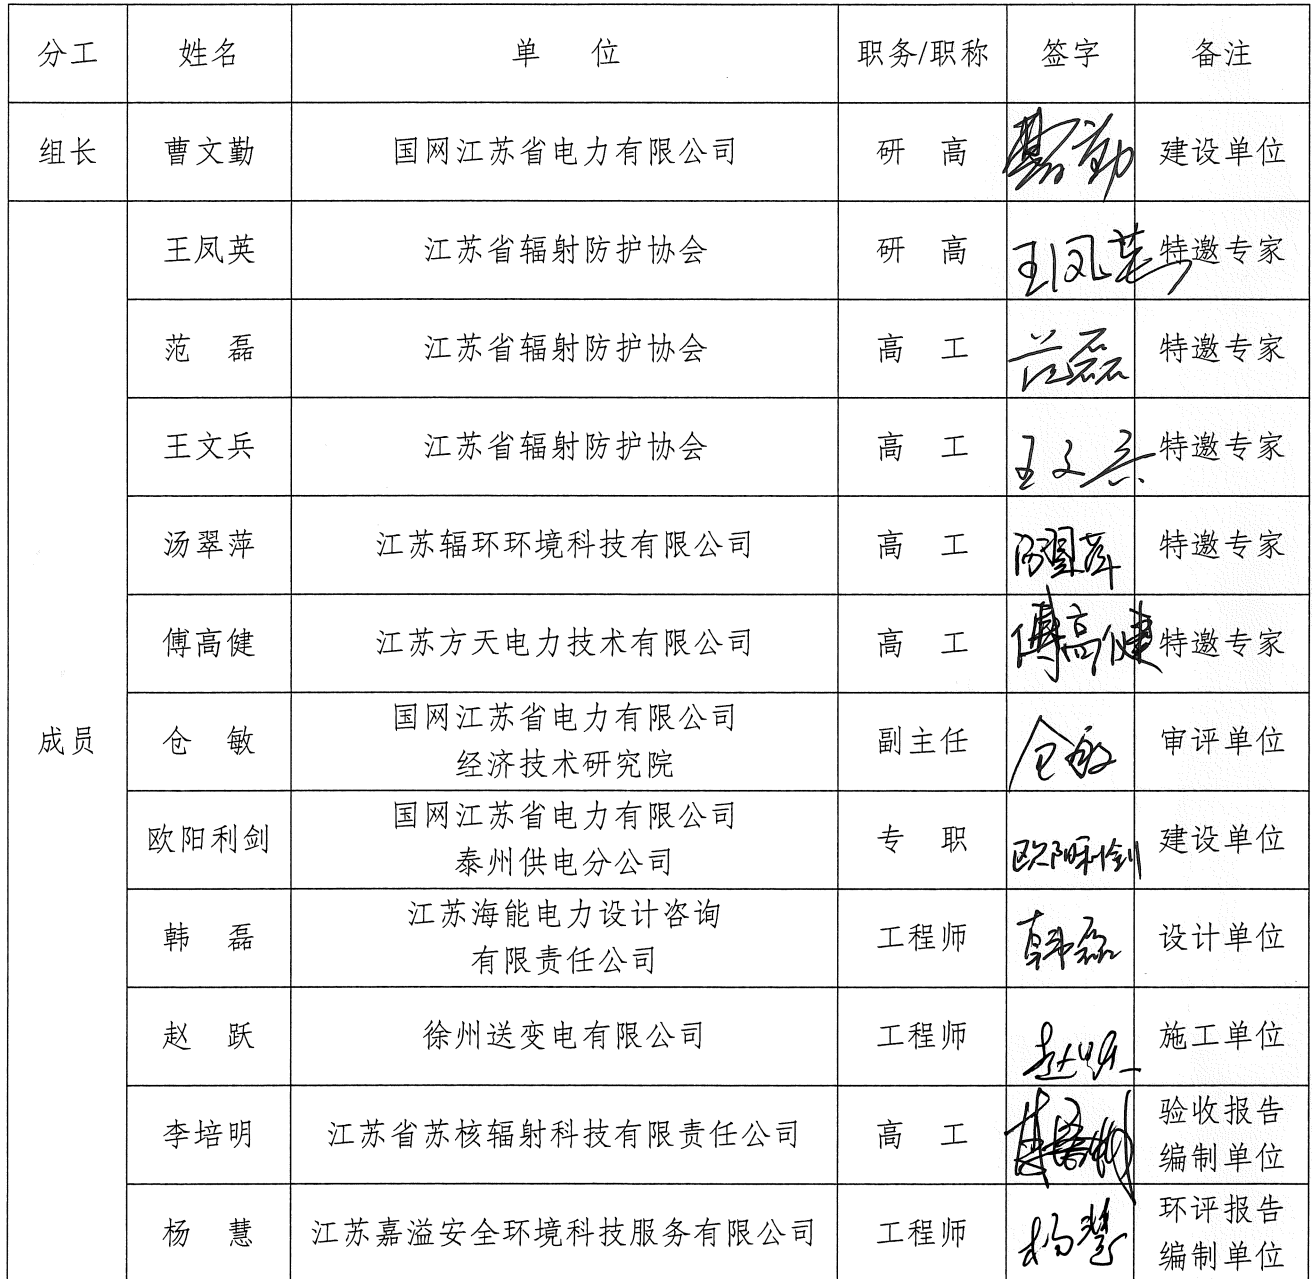 分工 姓名 单 位 职务/职称 签字 备注
组长 曹文勤 国网江苏省电力有限公司 研 高 曹文勤 建设单位
成员
王凤英 江苏省辐射防护协会 研 高 王凤英 特邀专家
范 磊 江苏省辐射防护协会 高 工 范磊 特邀专家
王文兵 江苏省辐射防护协会 高 工 王文兵 特邀专家
汤翠萍 江苏辐环环境科技有限公司 高 工 汤翠萍 特邀专家
傅高健 江苏方天电力技术有限公司 高 工 傅高健 特邀专家
仓 敏 国网江苏省电力有限公司
经济技术研究院 副主任 仓敏 审评单位
欧阳利剑 国网江苏省电力有限公司
泰州供电分公司 专 职 欧阳利剑 建设单位
韩 磊 江苏海能电力设计咨询
有限责任公司 工程师 韩磊 设计单位
赵 跃 徐州送变电有限公司 工程师 赵跃 施工单位
李培明 江苏省苏核辐射科技有限责任公司 高 工 李培明 验收报告
编制单位
杨 慧 江苏嘉溢安全环境科技服务有限公司 工程师 杨慧 环评报告
编制单位